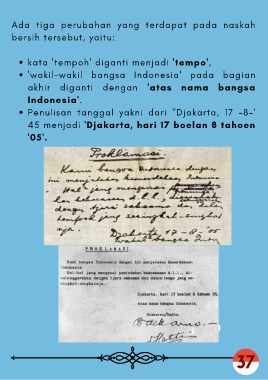 Ada tiga perubahan yang terdapat pada naskah
bersih tersebut, yaitu:
kata 'tempoh' diganti menjadi 'tempo',
'wakil-wakil bangsa Indonesia' pada bagian
akhir diganti dengan 'atas nama bangsa
Indonesia'.
Penulisan tanggal yakni dari "Djakarta, 17 -8-'
45 menjadi 'Djakarta, hari 17 boelan 8 tahoen
'05'.
Proklamasi.
Kami bangsa Indonesia dengan
ini menjatakan kemerdekaan
Hal² jang mengenai
d.l.l.,
dengan tjara
tempoh jang sesingkat-
nja.
Djakarta, 17-8-'05
Wakil² bangsa
PROKLAMASI
Kami bangsa Indonesia dengan ini menjatakan Kemerdekaan
Indonesia.
Hal-hal jang mengenai pemindahan kekoeasaan d.l.l., di-
selenggarakan dengan tjara saksama dan dalam tempo jang se-
singkat-singkatnja.
Djakarta, hari 17 boelan 8 tahoen 05.
Atas nama bangsa Indonesia.
Soekarno/Hatta.
37